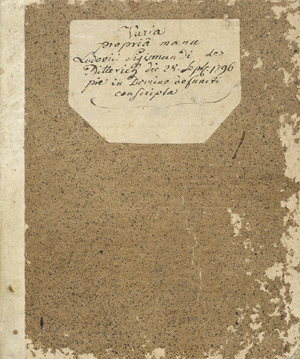 Varia
propriâ manu
Ludovici Sigismundi de
Ditterich die 28 Sept. 1796
pie in Domino defuncti
conscripta